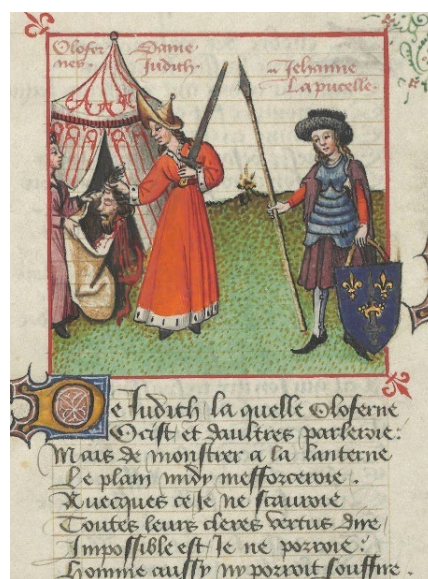 Olofer
nes.
Dame
Judith.
Jehanne
La pucelle.
De Judith la quelle Oloferne
Ocist et daultres parleroie:
Mais de monstrer a la lanterne
Le plain midy mefforceroie.
Avecques ce Je ne scauroie
Toutes leurs cleres vertus dire/
Impossible est/ Je ne porroie:
Homme aussy ny porroit souffire.